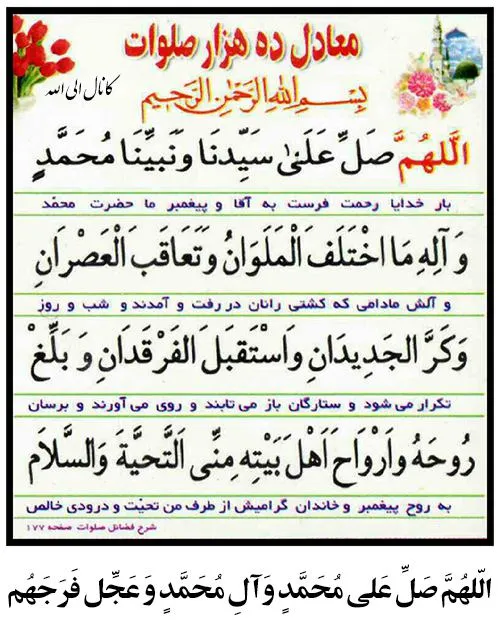 معادل ده هزار صلوات
کانال الی الله
بِسْمِ اللهِ الرَّحْمٰنِ الرَّحیمِ
اَللّهُمَّ صَلِّ عَلَیٰ سَیِّدِنَا وَنَبِیِّنَا مُحَمَّدٍ
بار خدایا رحمت فرست به آقا و پیغمبر ما حضرت محمّد
وَ آلِهِ مَا اخْتَلَفَ الْمَلَوَانُ وَتَعَاقَبَ الْعَصْرَانِ
و آلش مادامی که کشتی رانان در رفت و آمدند و شب و روز
وَکَرَّ الْجَدِیدَانِ وَاسْتَقْبَلَ الْفَرْقَدَانِ وَ بَلِّغْ
تکرار می شود و ستارگان باز می تابند و روی می آورند و برسان
رُوحَهُ وَاَرْوَاحَ اَهْلِ بَیْتِهِ مِنِّی اَلتَّحِیَّةَ وَالسَّلاٰمَ
به روح پیغمبر و خاندان گرامیش از طرف من تحیّت و درودی خالص
شرح فضائل صلوات صفحه ۱۷۷
اللّهُمَّ صَلِّ عَلی مُحَمَّدٍ وَآلِ مُحَمَّدٍ وَ عَجِّل فَرَجَهُم